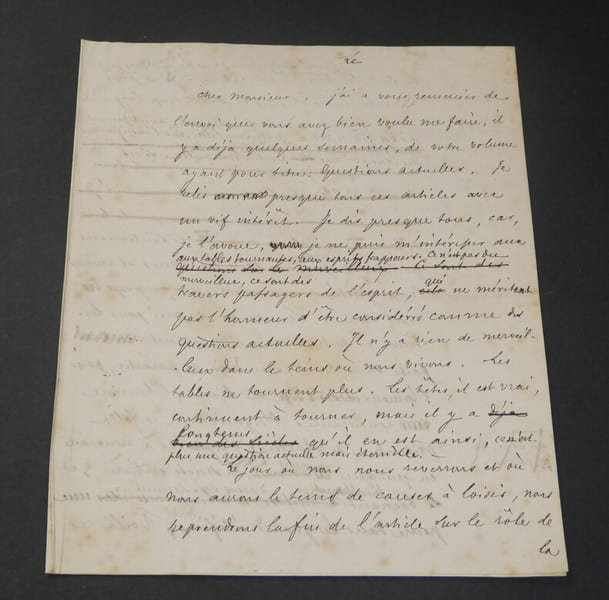 Cher Monsieur, j'ai à vous remercier de
l'envoi que vous avez bien voulu me faire, il
y a déjà quelques semaines, de votre volume
ayant pour titre: Questions actuelles. Je
relis presque tous ces articles avec
un vif intérêt. Je dis presque tous, car,
je l'avoue, je ne puis m'intéresser aux
aux tables tournantes, aux esprits frappeurs. Ce n'est pas du
questions sur le merveilleux. Ce sont des
merveilleux, ce sont des
qui
travers passagers de l'esprit, ne méritent
pas l'honneur d'être considérés comme des
questions actuelles. Il n'y a rien de merveil-
-leux dans le tems où nous vivons. Les
tables ne tournent plus. Les têtes, il est vrai,
continuent à tourner, mais il y a déjà
longtems
bien des siècles qu'il en est ainsi, ce n'est
plus une question actuelle mais éternelle.
Le jour où nous nous reverrons et où
nous aurons le tems de causer à loisir, nous
reprendrons la fin de l'article sur le rôle de
la